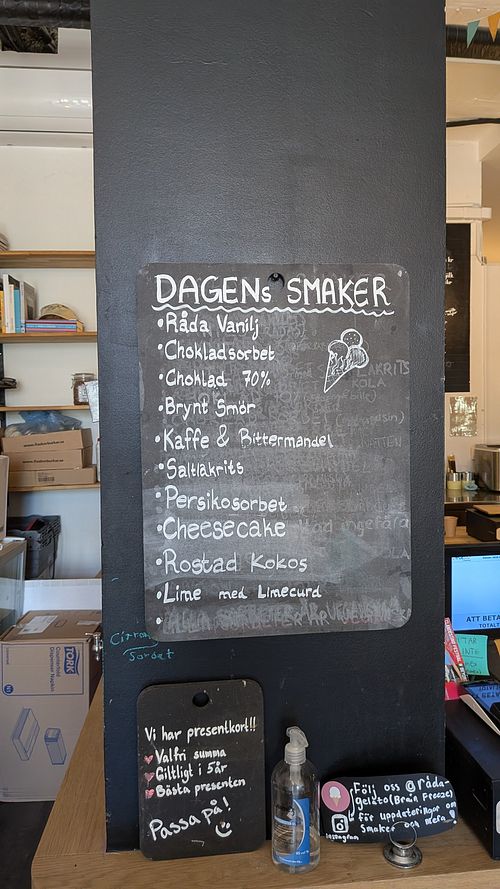 DAGENs SMAKER
• Råda Vanilj
• Chokladsorbet
• Choklad 70%
• Brynt Smör
• Kaffe & Bittermandel
• Saltlakrits
• Persikosorbet
• Cheesecake
• Rostad Kokos
• Lime med Limecurd
•
Sorbet
Vi har presentkort!!
Valfri summa
Giltligt i 5år
Bästa presenten
Passa på!
Följ oss @råda-
gelato(Brain Freeze)
för uppdateringar om
Smaker och mera
Instagram
TORK
ATT BETA
TOTALT
TAR
INTE